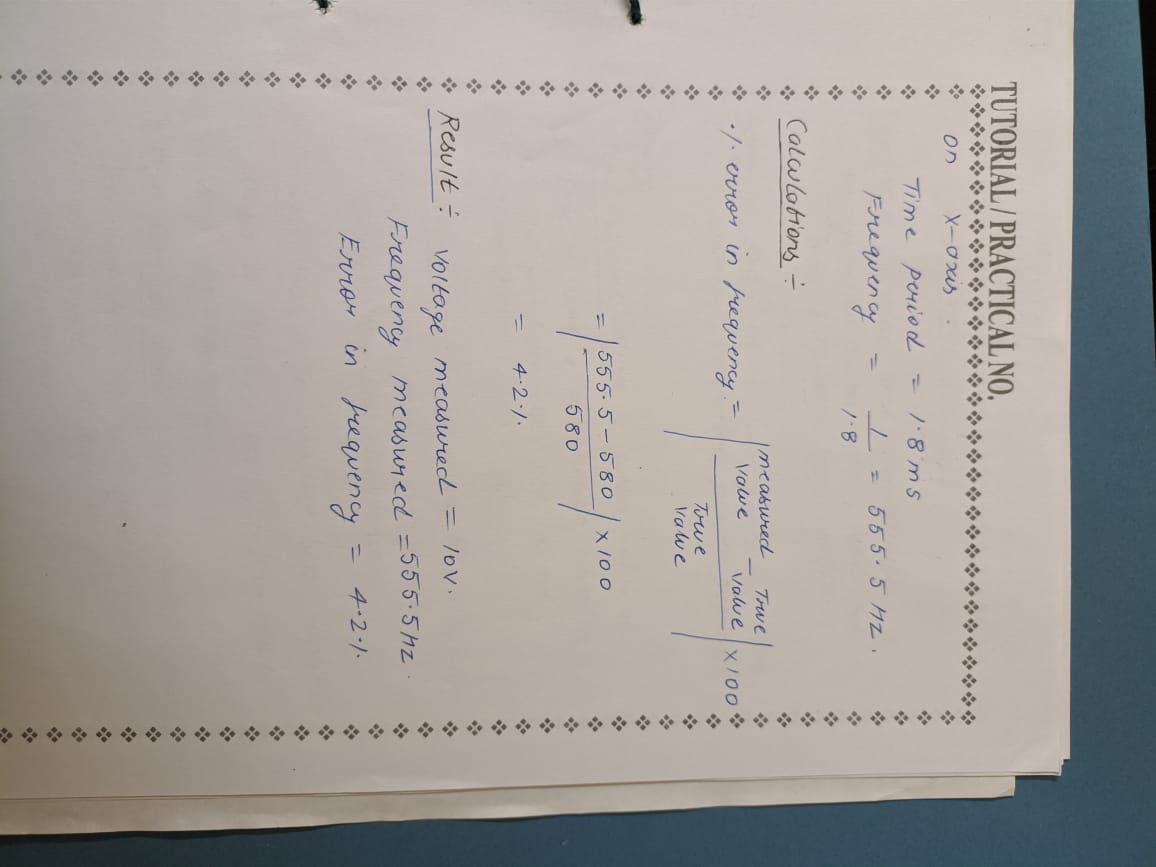 TUTORIAL / PRACTICAL NO.
on x-axis.
Time period = 1.8 ms
Frequency = 1/1.8 = 555.5 Hz.
Calculations ÷
% error in frequency = |measured value - True value / True value| x 100
= |555.5 - 580 / 580| x 100
= 4.2%
Result ÷ Voltage measured = 10V.
Frequency measured = 555.5 Hz.
Error in frequency = 4.2%